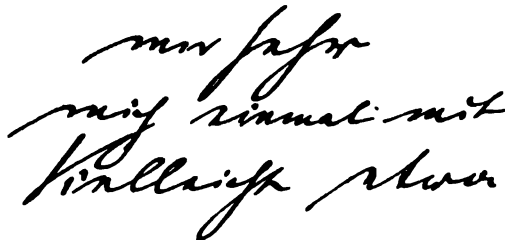 mir sehr
mich einmal mit
Vielleicht etwa